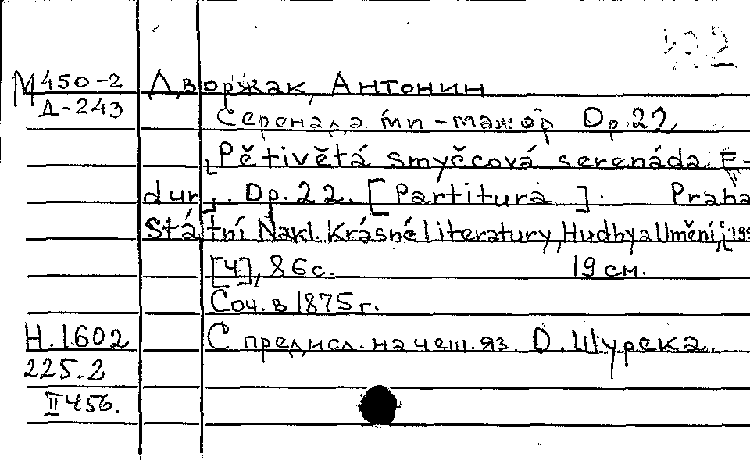 М 450-2 Дворжак, Антонин
Д-243
Серенада ми-мажор Op. 22
[Pětivětá smyčcová serenáda E-
dur]. Op. 22. [Partitura]. Praha
Státní Nakl. Krásné literatury, Hudby a Umění, [195
[4], 86 с. 19 см.
Соч. в 1875 г.
Н. 1602 С предисл. на чеш. яз. О. Шурека.
225.2
II 456.